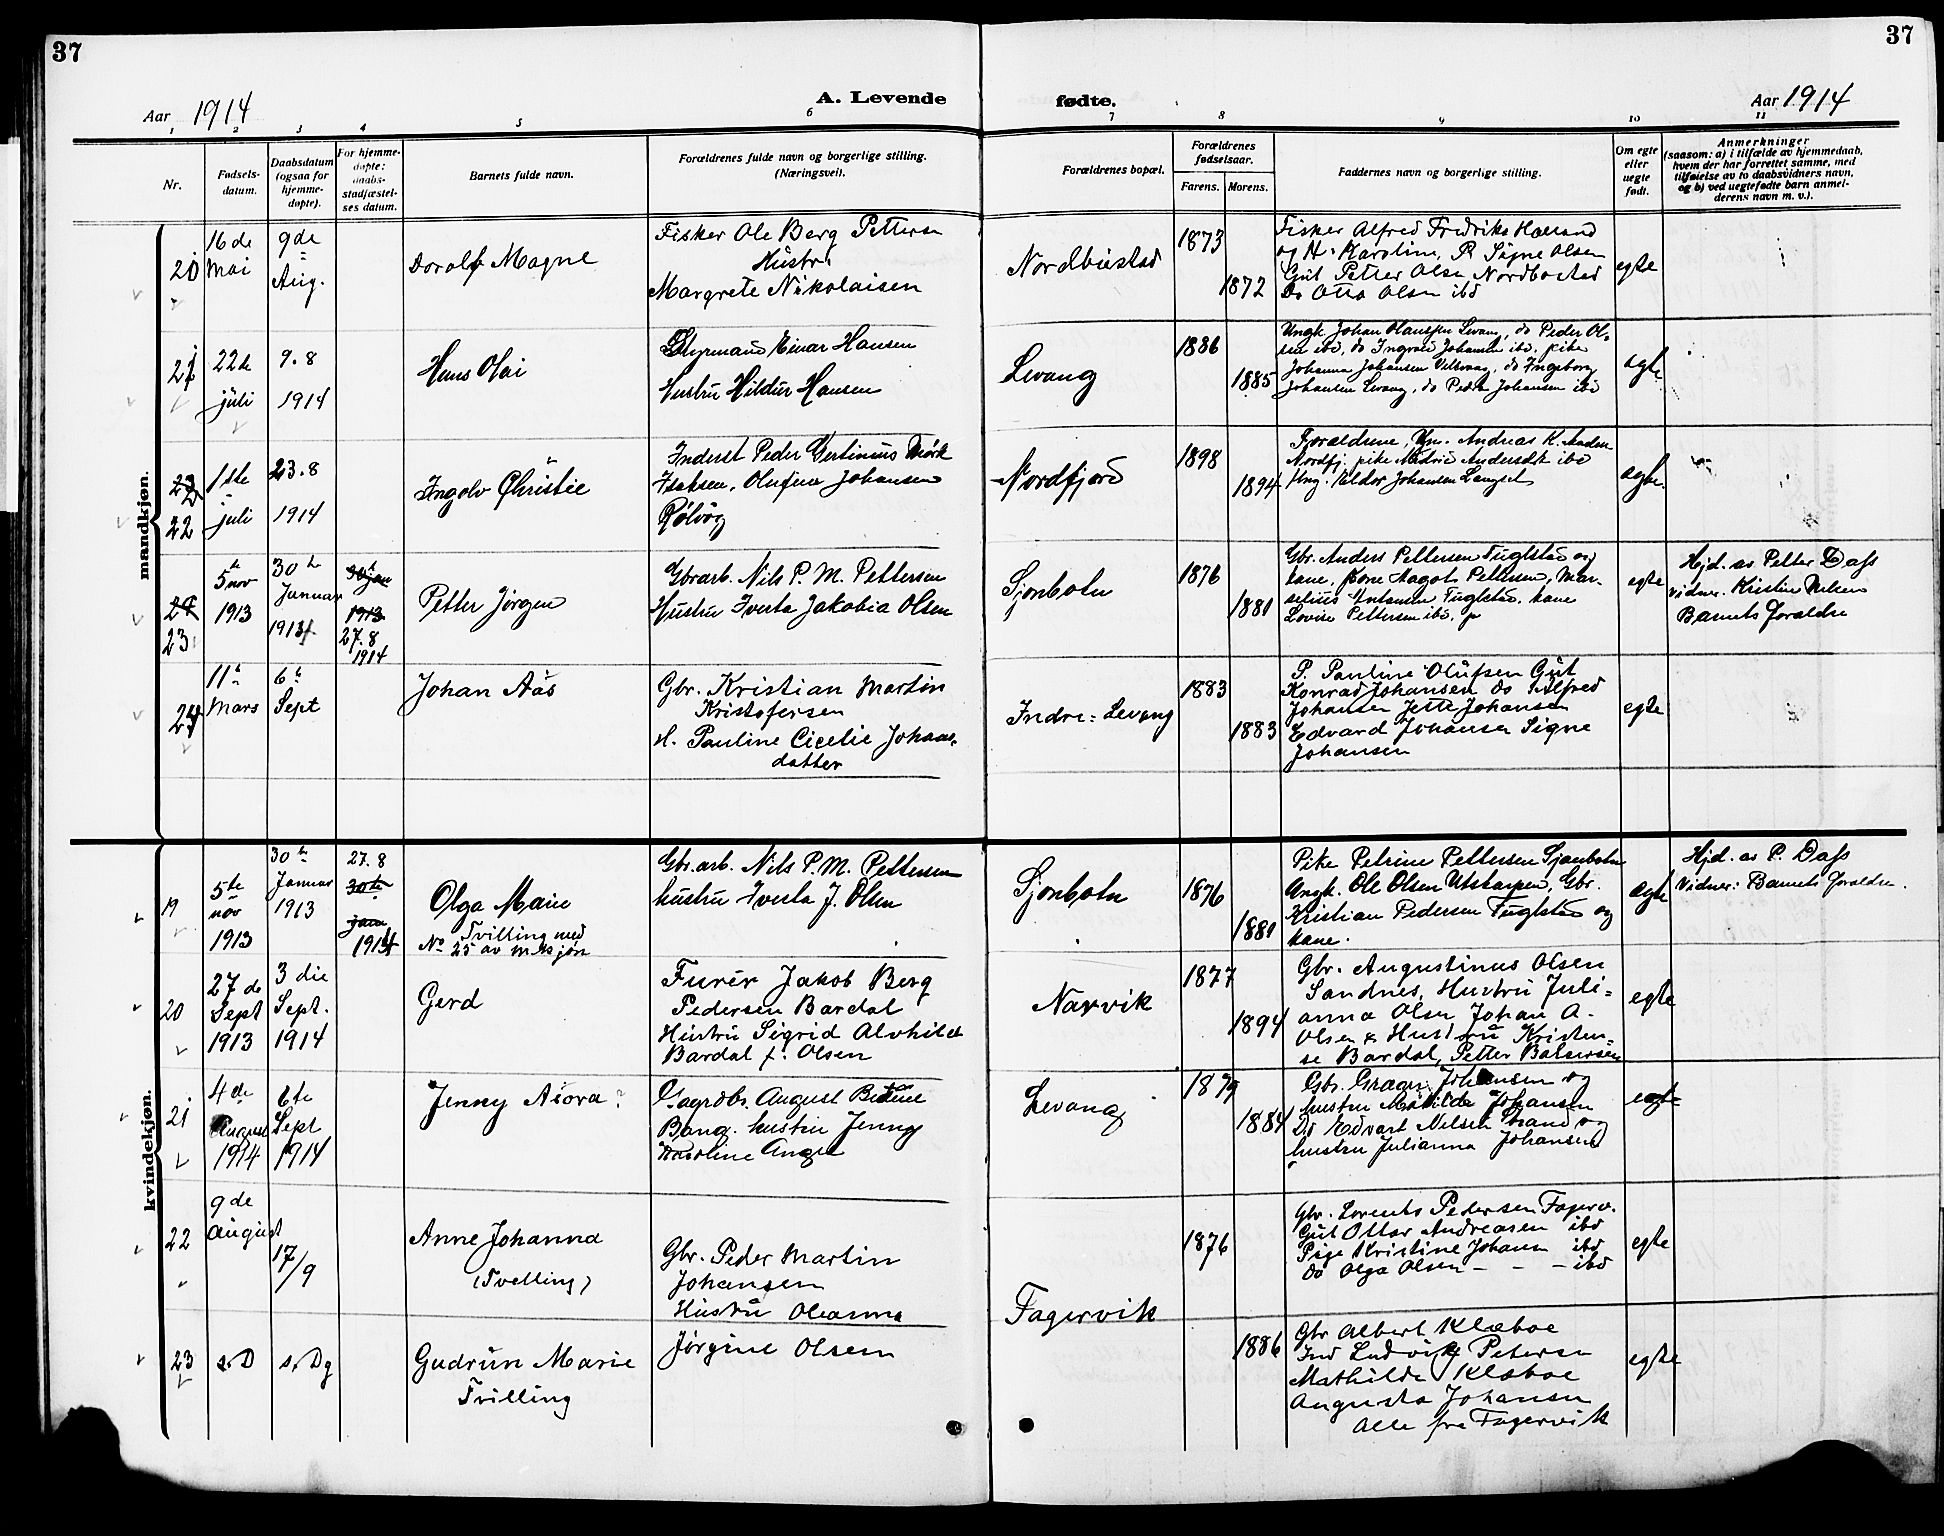 37
37
Aar 1914
A. Levende
fødte.
Aar 1914
1 2 3 4 5 6 7 8 9 10 11
Nr.
Fødsels-
datum.
Daabsdatum
(ogsaa for
hjemme-
døpte).
For hjemme-
døpte:
daabs-
stadfæstel-
ses datum.
Barnets fulde navn.
Forældrenes fulde navn og borgerlige stilling.
(Næringsvei).
Forældrenes bopæl.
Forældrenes
fødselsaar.
Farens.
Morens.
Faddernes navn og borgerlige stilling.
Om egte
eller
uegte
født.
Anmerkninger
(saasom: a) i tilfælde av hjemmedaab,
hvem der har forrettet samme, med
tilføielse av to daabsvidners navn,
og b) ved uegtefødte barn anmel-
derens navn m. v.).
mandkjøn.
20
16 de
Mai
9 de
Aug.
Dorolf Magne
Fisker Ole Berg Petterse
Hustr.
Margrete Nikolaisen
Nordbustad
1873
1872
Fisker Alfred Fredriks
og H. Karoline, P. Signe Olsen
Gut Petter Olsn Nordbostad
Do Otto Olsen ibd
egte
21
22de
juli
9.8
1914
Hans Olai
Styrmand Einar Hansen
Hustru Hildur Hansen
Levang
1886
1885
Ungk. Johan Levang, do Peder Ol-
sen ibd, do Johansen ibd. pike
Johanna Johansen, do Ingeborg
Johansen Levang, do Johansen ibd
egte
22
1ste
juli
23.8
1914
Ingolv Christie
Inderst Peder Mørk
Isaksen, Olufine Johansen
Rølvåg
Nordfjord
1898
1894
Forældrene, Andreas K.
Nordfj. pike Andersen ibd
Ung. Johansen Langset
egte.
23
5te
nov
1913
30te
Januar
1914
30 jan
1913
27.8
1914
Petter Jørgen
Gbrarb. Nils P. M. Pettersen
Hustru Iverta Jakobia Olsen
Sjonbotn
1876
1881
Gbr. Anders Pettersen Fuglstad og
kone, Hagot Pettersen, Mar-
selius Antonsen Fuglstad, kone
Lovise Pettersen ibd.
egte
Hjd. as Petter Dass
vidner. Kristine
Barnets Foraldre
24
11te
Mars
6te
Sept
Johan Aås
Gbr. Kristian Martin
Kristofersen
H. Pauline Cicelie Johans-
datter
Indre-Levang
1883
1883
P. Pauline Olufsen Gut
Konrad Johansen do Alfred
Johansen Jette Johansen
Edvard Johansen Signe
Johansen
egte
kvindekjøn.
19
5te
nov
1913
30te
Januar
1913
27.8
30te
jan
1914
Olga Marie
Tvilling med
No 25 av m.kjøn
Gbr.arb. Nils P. M. Pettersen
hustru Iverta J. Olsen
Sjonbotn
1876
1881
Pike Petrine Pettersen Sjonbotn
Ungk. Ole Olsen Utskarpen, Gbr.
Kristian Pedersen Fuglstad og
kone.
egte
Hjd. as P. Dass
Vidner: Barnets Foraldre.
20
27 de
Sept
1913
3 die
Sept.
1914
Gerd
Furer Jakob Berg
Pedersen Bardal
Hustru Sigrid Alvhild
Bardal f. Olsen
Narvik
1877
1894
Gbr. Augustinus Olsen
Sandnes, Hustru Juli-
anna Olsen Johan A.
Olsen & Hustru Kristen-
se Bardal, Petter
egte
21
4 de
August
1914
6te
Sept
1914
Jenny Asora?
August
Bang. hustru Jenny
Karoline
Levang
1879
1884
Gbr. Johansen og
hustru Matilde Johansen
Do Edvart Nilsen Strand og
hustru Julianna Johansen
egte
22
9 de
August
17/9
Anne Johanna
(Tvelling)
Gbr. Peder Martin
Johansen
Hustru Oleanna
Jørgine Olsen
Fagervik
1876
1886
Gbr. Lorents Pedersen Fagerv.
Gut Ottar Andreasen ibd
Pige Kristine Johansn ibd
do Olga Olsen - - - ibd
egte
23
s. D
s. Dg
Gudrun Marie
Tvilling
Gbr Albert Klæboe
Ind Ludvik Petersn
Mathilde Klæboe
Augusta Johansen
Alle fra Fagervik
egte